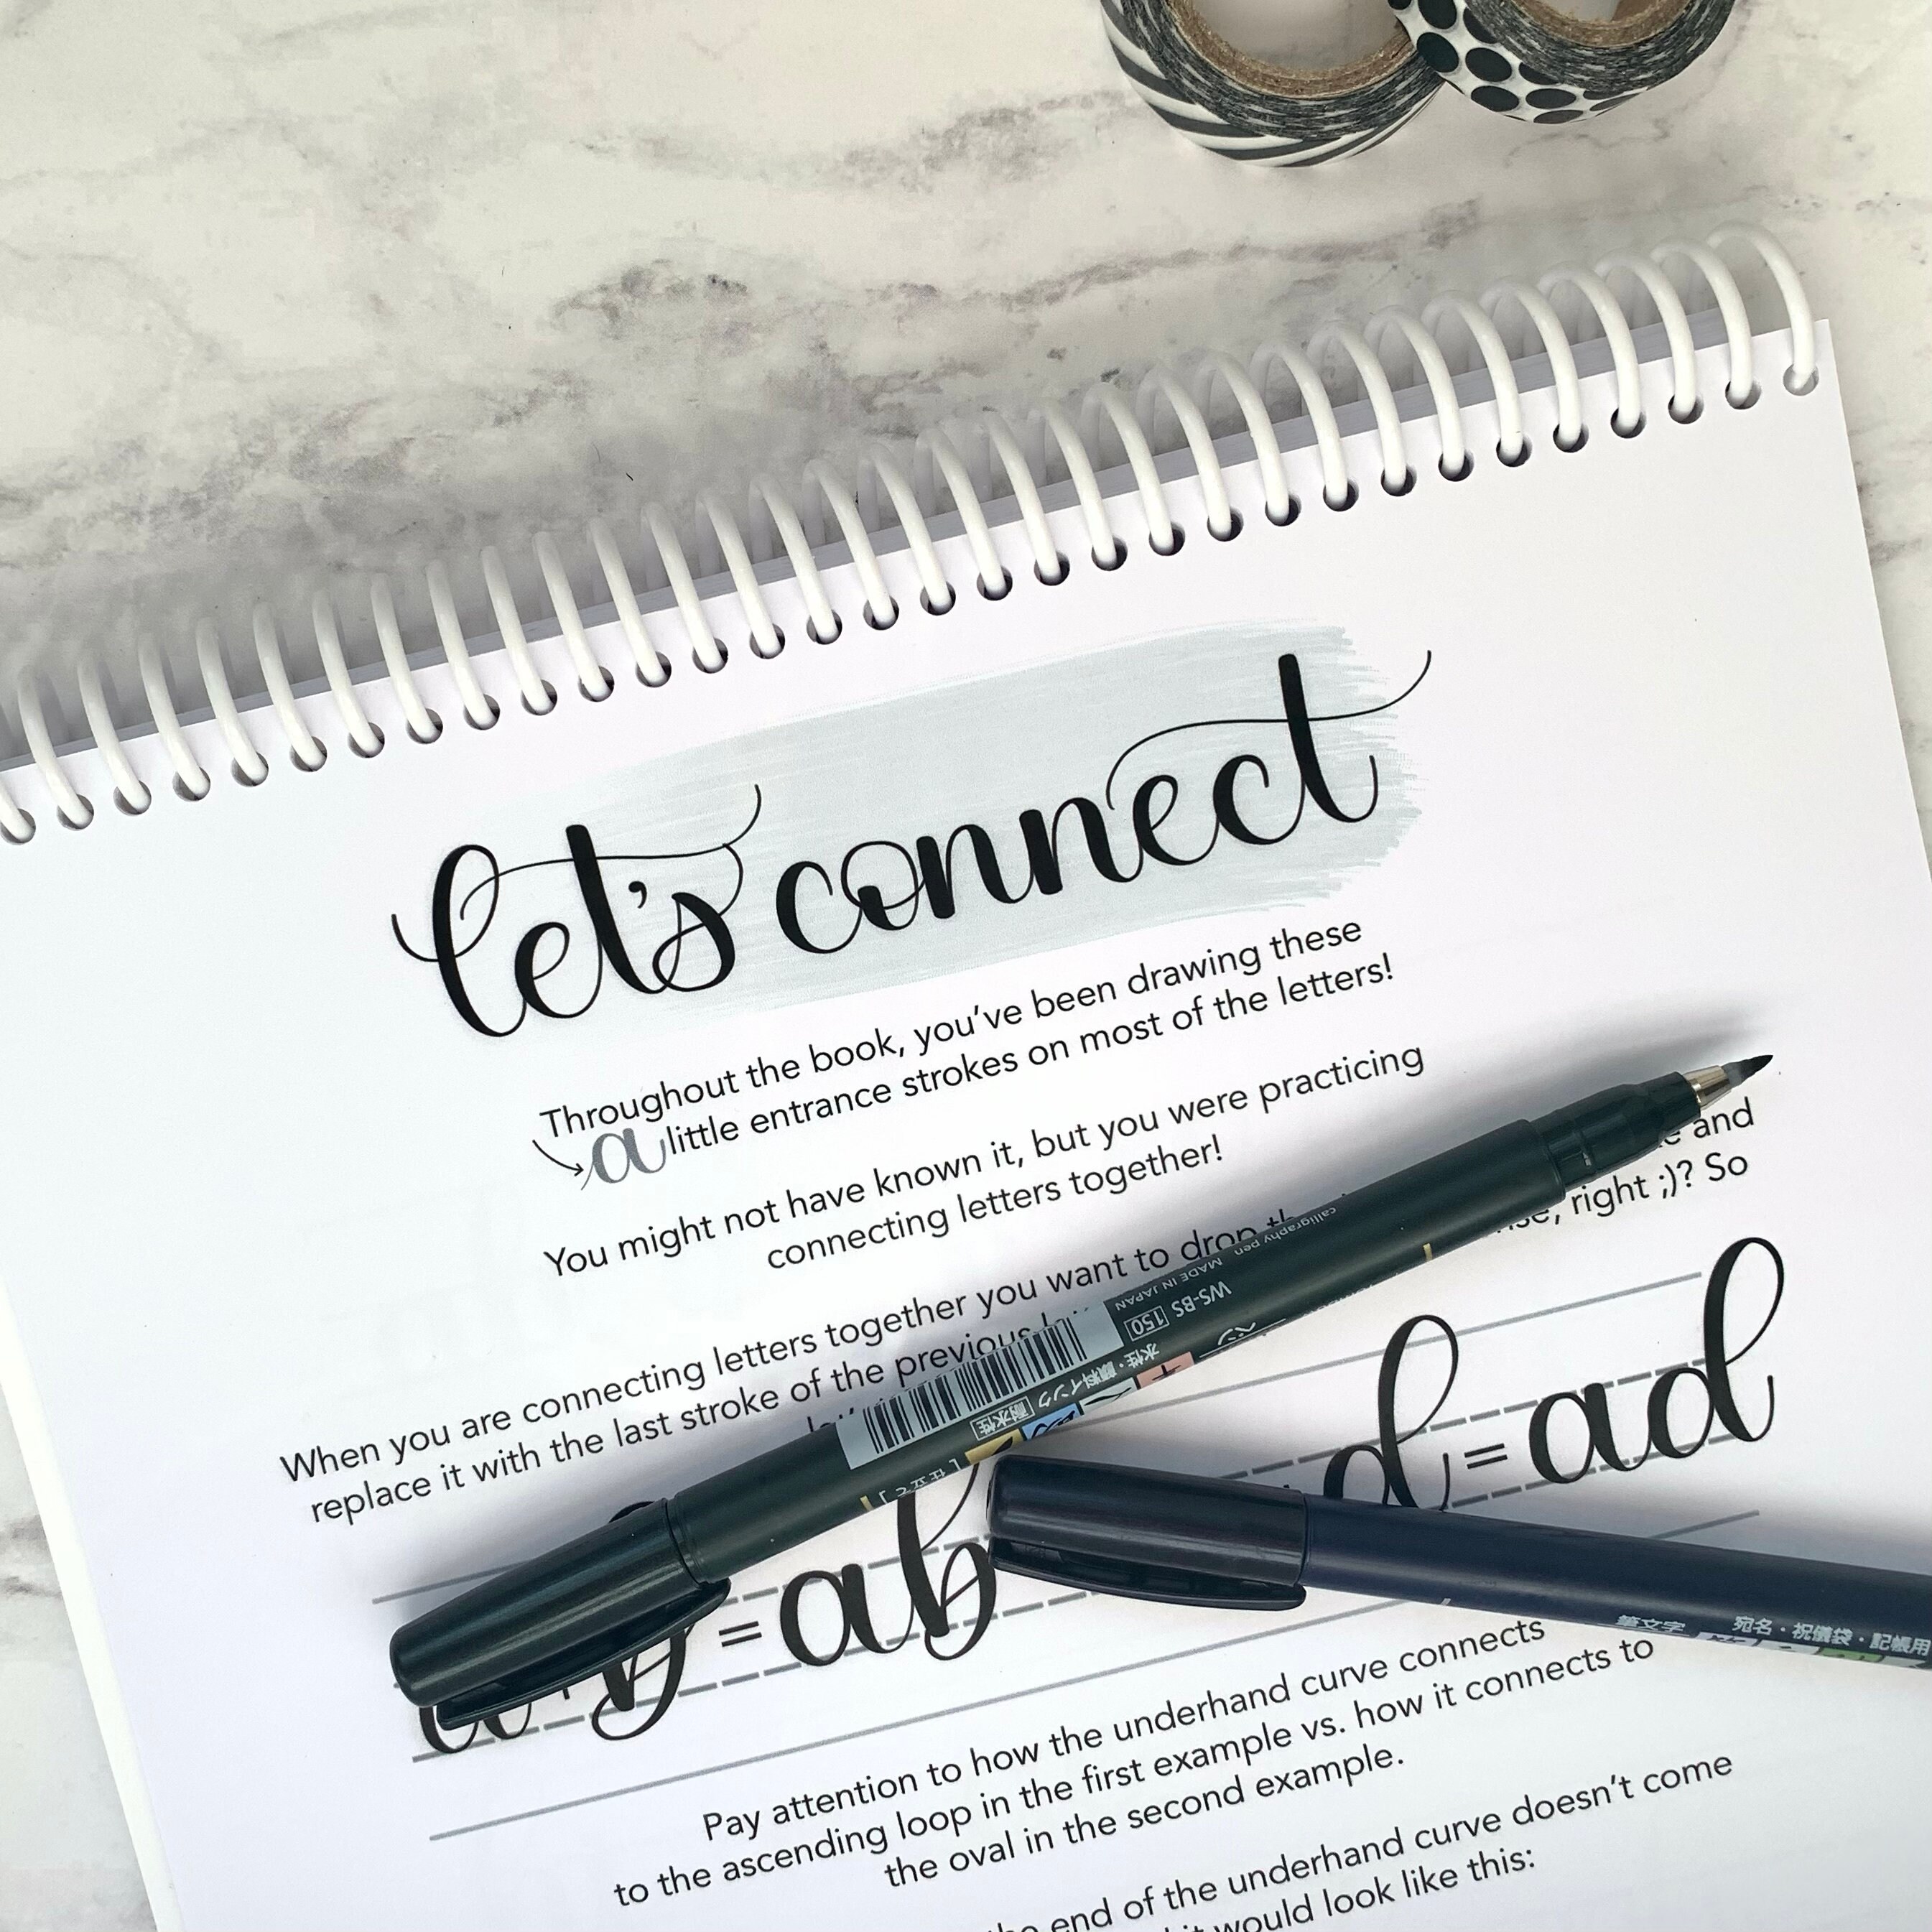 let's connect
Throughout the book, you've been drawing these
a little entrance strokes on most of the letters!
You might not have known it, but you were practicing
connecting letters together!
When you are connecting letters together you want to drop and
replace it with the last stroke of the previous right ;)? So
d = ad
b = ab
Pay attention to how the underhand curve connects
to the ascending loop in the first example vs. how it connects to
the oval in the second example.
end of the underhand curve doesn't come
would look like this:
calligraphy pen
MADE IN JAPAN
WS-BS 150
水性・顔料インク 耐水性
筆文字 宛名・祝儀袋・記帳用